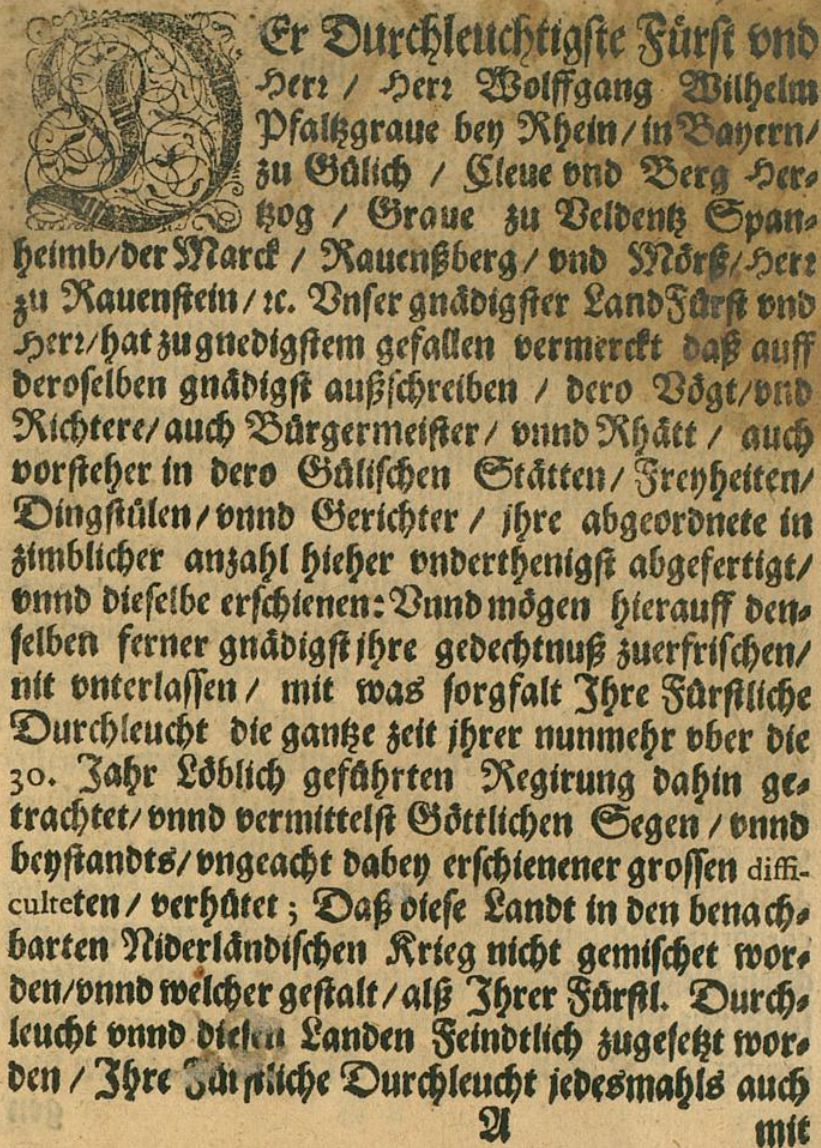 DEr Durchleuchtigste Fürst vnd
Herr / Herr Wolffgang Wilhelm
Pfaltzgraue bey Rhein / in Bayern /
zu Gülich / Cleue vnd Berg Her-
tzog / Graue zu Veldentz Span-
heimb / der Marck / Rauenßberg / vnd Mörß / Herr
zu Rauenstein / ꝛc. Vnser gnädigster LandFürst vnd
Herr / hat zu gnedigstem gefallen vermerckt daß auff
deroselben gnädigst außschreiben / dero Vögt / vnd
Richtere / auch Bürgermeister / vnnd Rhätt / auch
vorsteher in dero Gülischen Stätten / Freyheiten /
Dingstülen / vnnd Gerichter / jhre abgeordnete in
zimblicher anzahl hieher vnderthenigst abgefertigt /
vnnd dieselbe erschienen: Vnnd mögen hierauff den-
selben ferner gnädigst jhre gedechtnuß zuerfrischen /
nit vnterlassen / mit was sorgfalt Ihre Fürstliche
Durchleucht die gantze zeit jhrer nunmehr vber die
30. Jahr Löblich geführten Regirung dahin ge-
trachtet / vnnd vermittelst Göttlichen Segen / vnnd
beystandts / vngeacht dabey erschienener grossen diffi-
culteten / verhütet ; Daß diese Landt in den benach-
barten Niderländischen Krieg nicht gemischet wor-
den / vnnd welcher gestalt / alß Ihrer Fürstl. Durch-
leucht vnnd diesen Landen Feindtlich zugesetzt wor-
den / Ihre Fürstliche Durchleucht jedesmahls auch
A mit